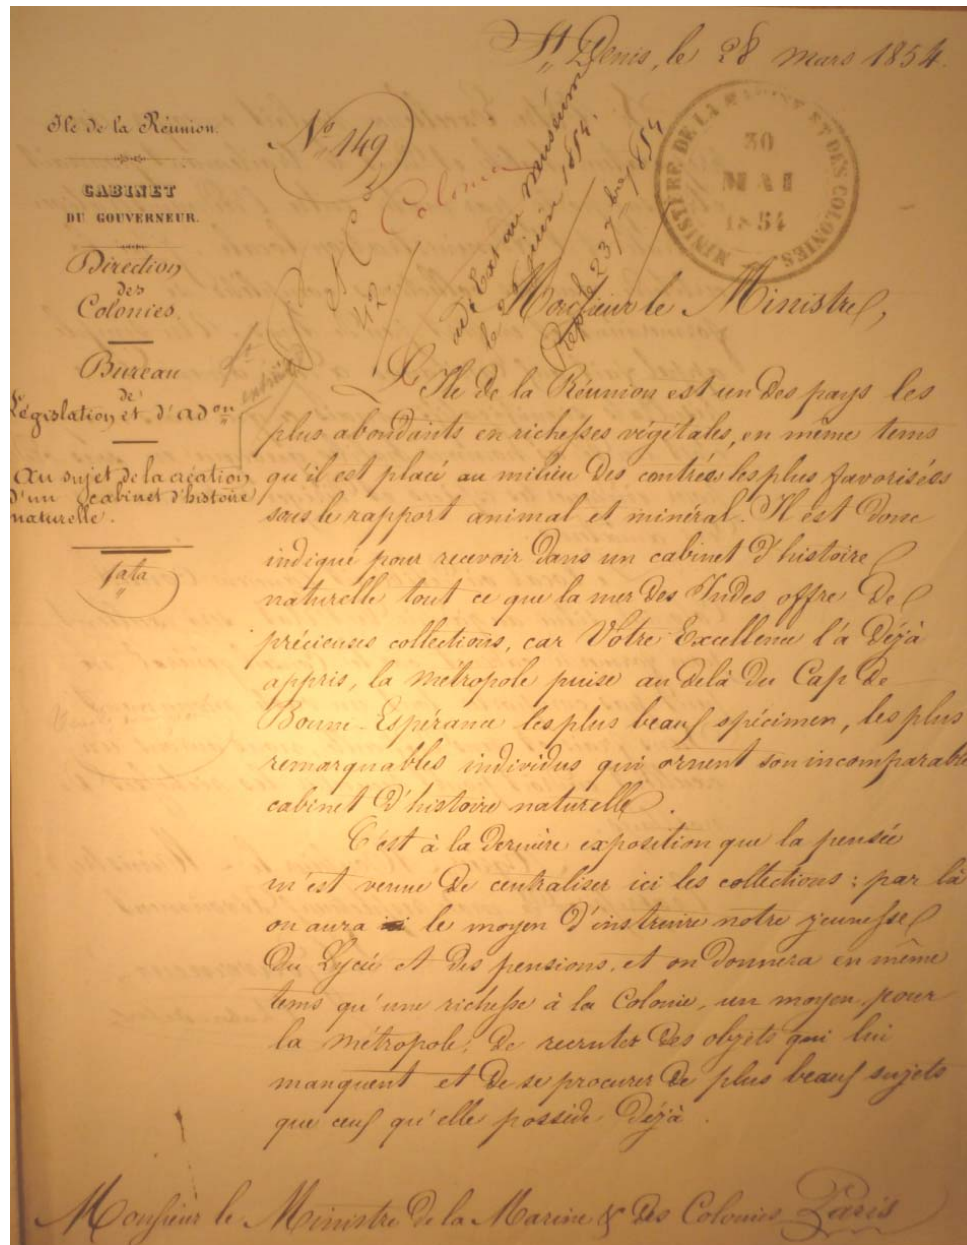 St Denis, le 28 mars 1854.
Ile de la Réunion.
CABINET
DU GOUVERNEUR.
Direction
des
Colonies.
Bureau
de
Législation et d'adon
Au sujet de la création
d'un cabinet d'histoire
naturelle.
No 149
Colonies
42
Ext au muséum
le juin 1854.
Rep. le 23 7bre 1854
MINISTERE DE LA MARINE ET DES COLONIES
30
MAI
1854
Monsieur le Ministre,
L'Ile de la Réunion est un des pays les
plus abondants en richesses végétales, en même tems
qu'il est placé au milieu des contrées les plus favorisées
sous le rapport animal et minéral. Il est donc
indiqué pour recevoir dans un cabinet d'histoire
naturelle tout ce que la mer des Indes offre de
précieuses collections, car Votre Excellence l'a déjà
appris, la métropole puise au delà du Cap de
Bonne-Espérance les plus beaux spécimen, les plus
remarquables individus qui ornent son incomparable
cabinet d'histoire naturelle.
C'est à la dernière exposition que la pensée
m'est venue de centraliser ici les collections : par là
on aura le moyen d'instruire notre jeunesse
du Lycée et des pensions, et on donnera en même
tems qu'une richesse à la Colonie, un moyen pour
la métropole, de recruter des objets qui lui
manquent et de se procurer de plus beaux sujets
que ceux qu'elle possède déjà.
Monsieur le Ministre de la Marine & des Colonies Paris